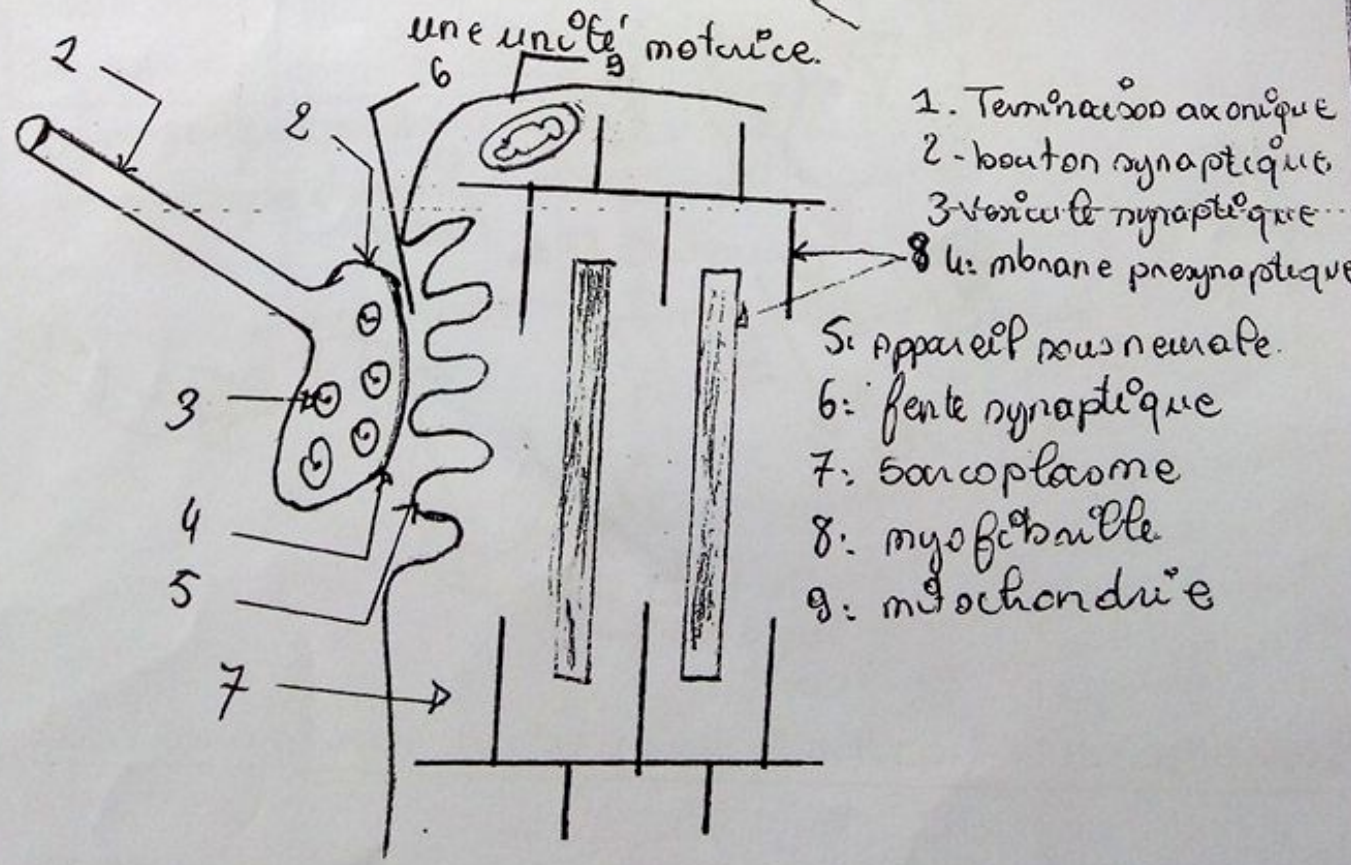 une unité motrice.
1
6
9
2
1. Terminaison axonique
2-bouton synaptique
3-vesicule synaptique
8 4: mbrane presynaptique
5: Appareil sous neurale.
6: fente synaptique
3
7: sarcoplasme
4
8: myofibrille
5
9: mitochondrie
7